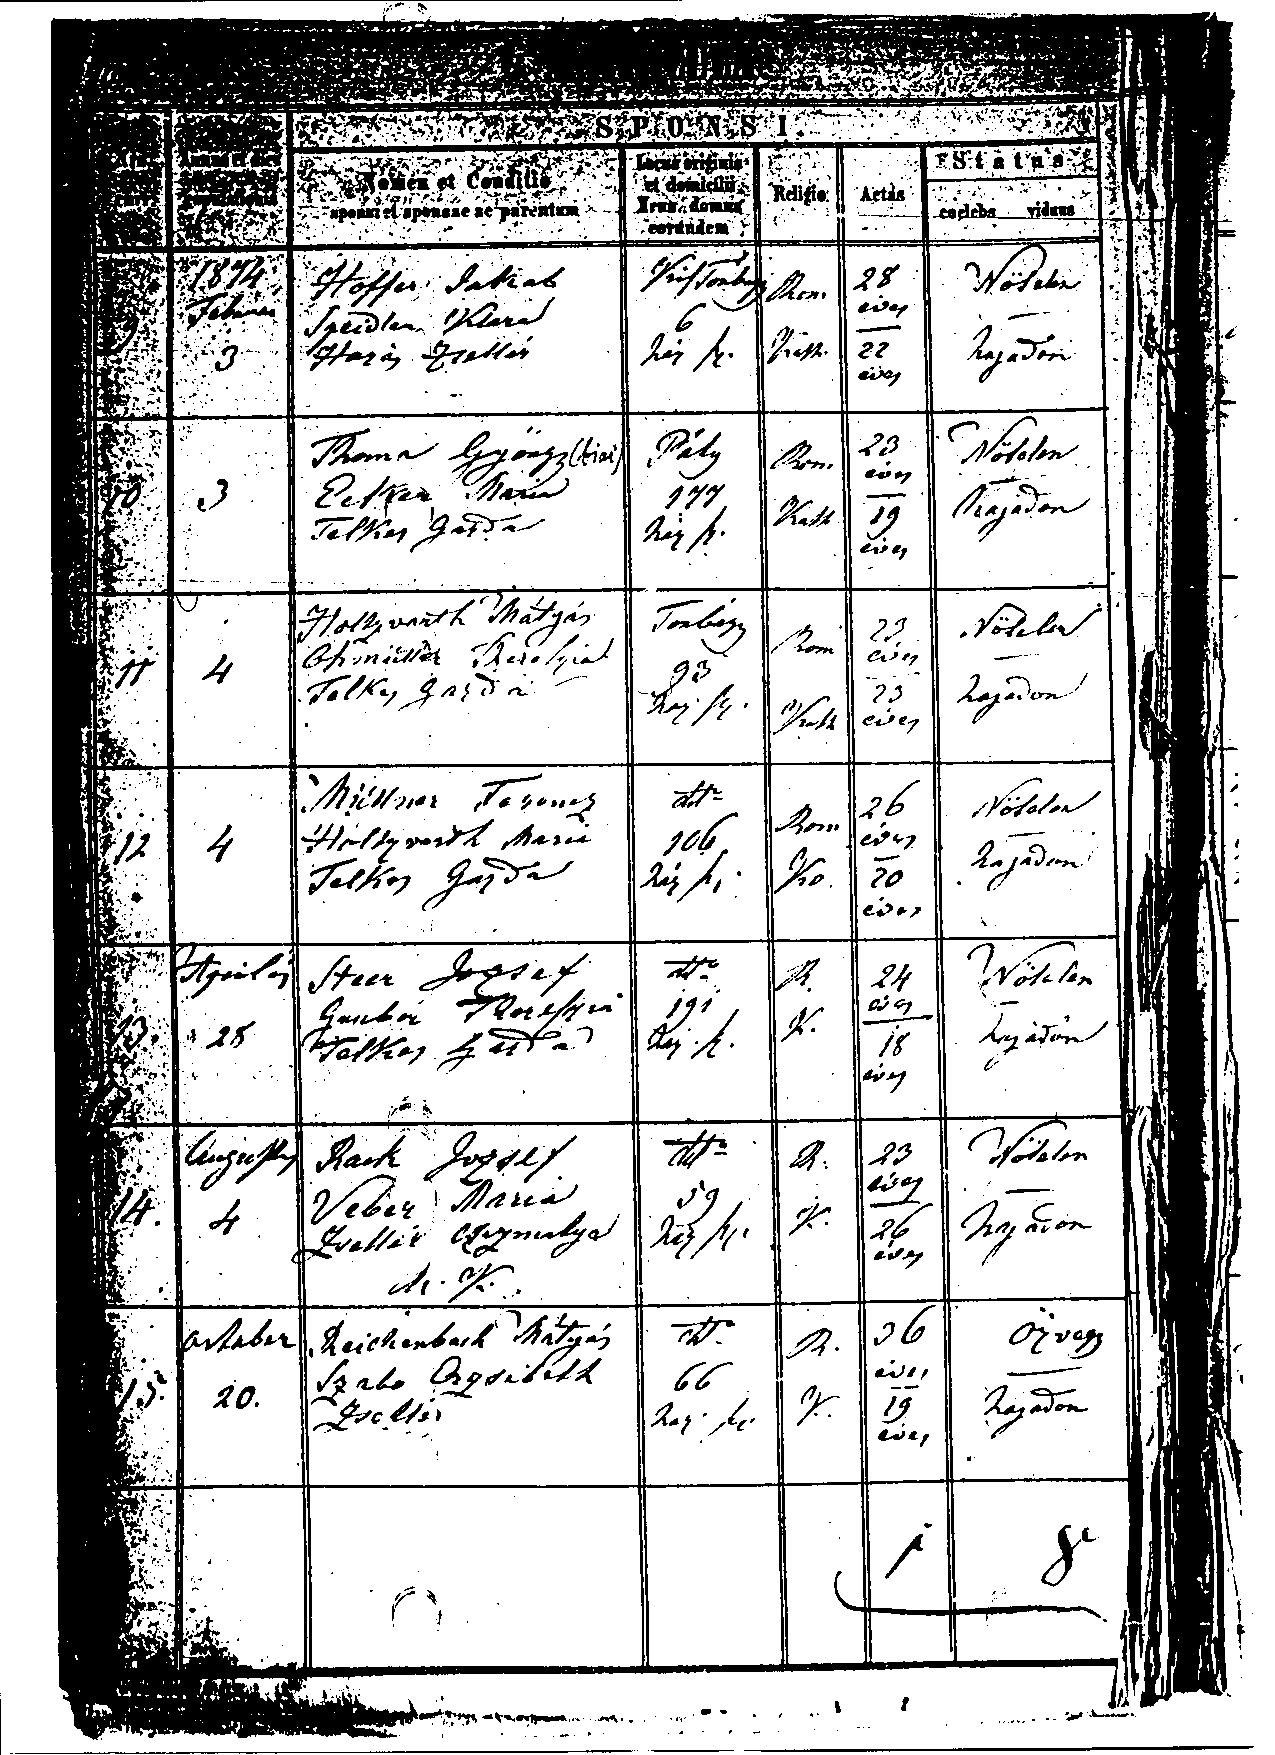 SPONSI.
Nomen et Conditio
sponsi et sponsae ac parentum
Locus originis
et domicilii
Nrus domus
eorundem
Religio
Aetas
Status
coelebs viduus
1874
Február
3
Hoffer Jakab
Speidlen Klara
Házas Zsellér
6
ház sz.
Rom.
Kath.
28
éves
22
éves
Nőtelen
hajadon
10
3
Thoma György
Maria
Telkes Gazda
Páty
177
ház sz.
Rom.
Kath
23
éves
19
éves
Nőtelen
Hajadon
11
4
Holtzvarth Mátyás
Therehzia
Telkes Gazda
93
ház sz.
Rom
Kath
23
éves
23
éves
Nőtelen
hajadon
12
4
Müllner Ferencz
Holtzvarth Maria
Telkes Gazda
dtto
106
ház sz.
Rom
Ka.
26
éves
20
éves
Nőtelen
hajadon
Aprilis
13.
28
Steer Jozsef
Telkes Gazda
dtto
191
ház sz.
R.
K.
24
éves
18
éves
Nőtelen
hajadon
14.
4
Rack Jozsef
Veber Maria
Zsellér
dtto
59
ház sz.
R.
K.
23
éves
26
éves
Nőtelen
hajadon
October
15.
20.
Reichenbach Mátyás
Szabo Orzsébeth
Zsellér
dtto
66
ház sz.
R.
K.
36
éves
19
éves
Özvegy
hajadon